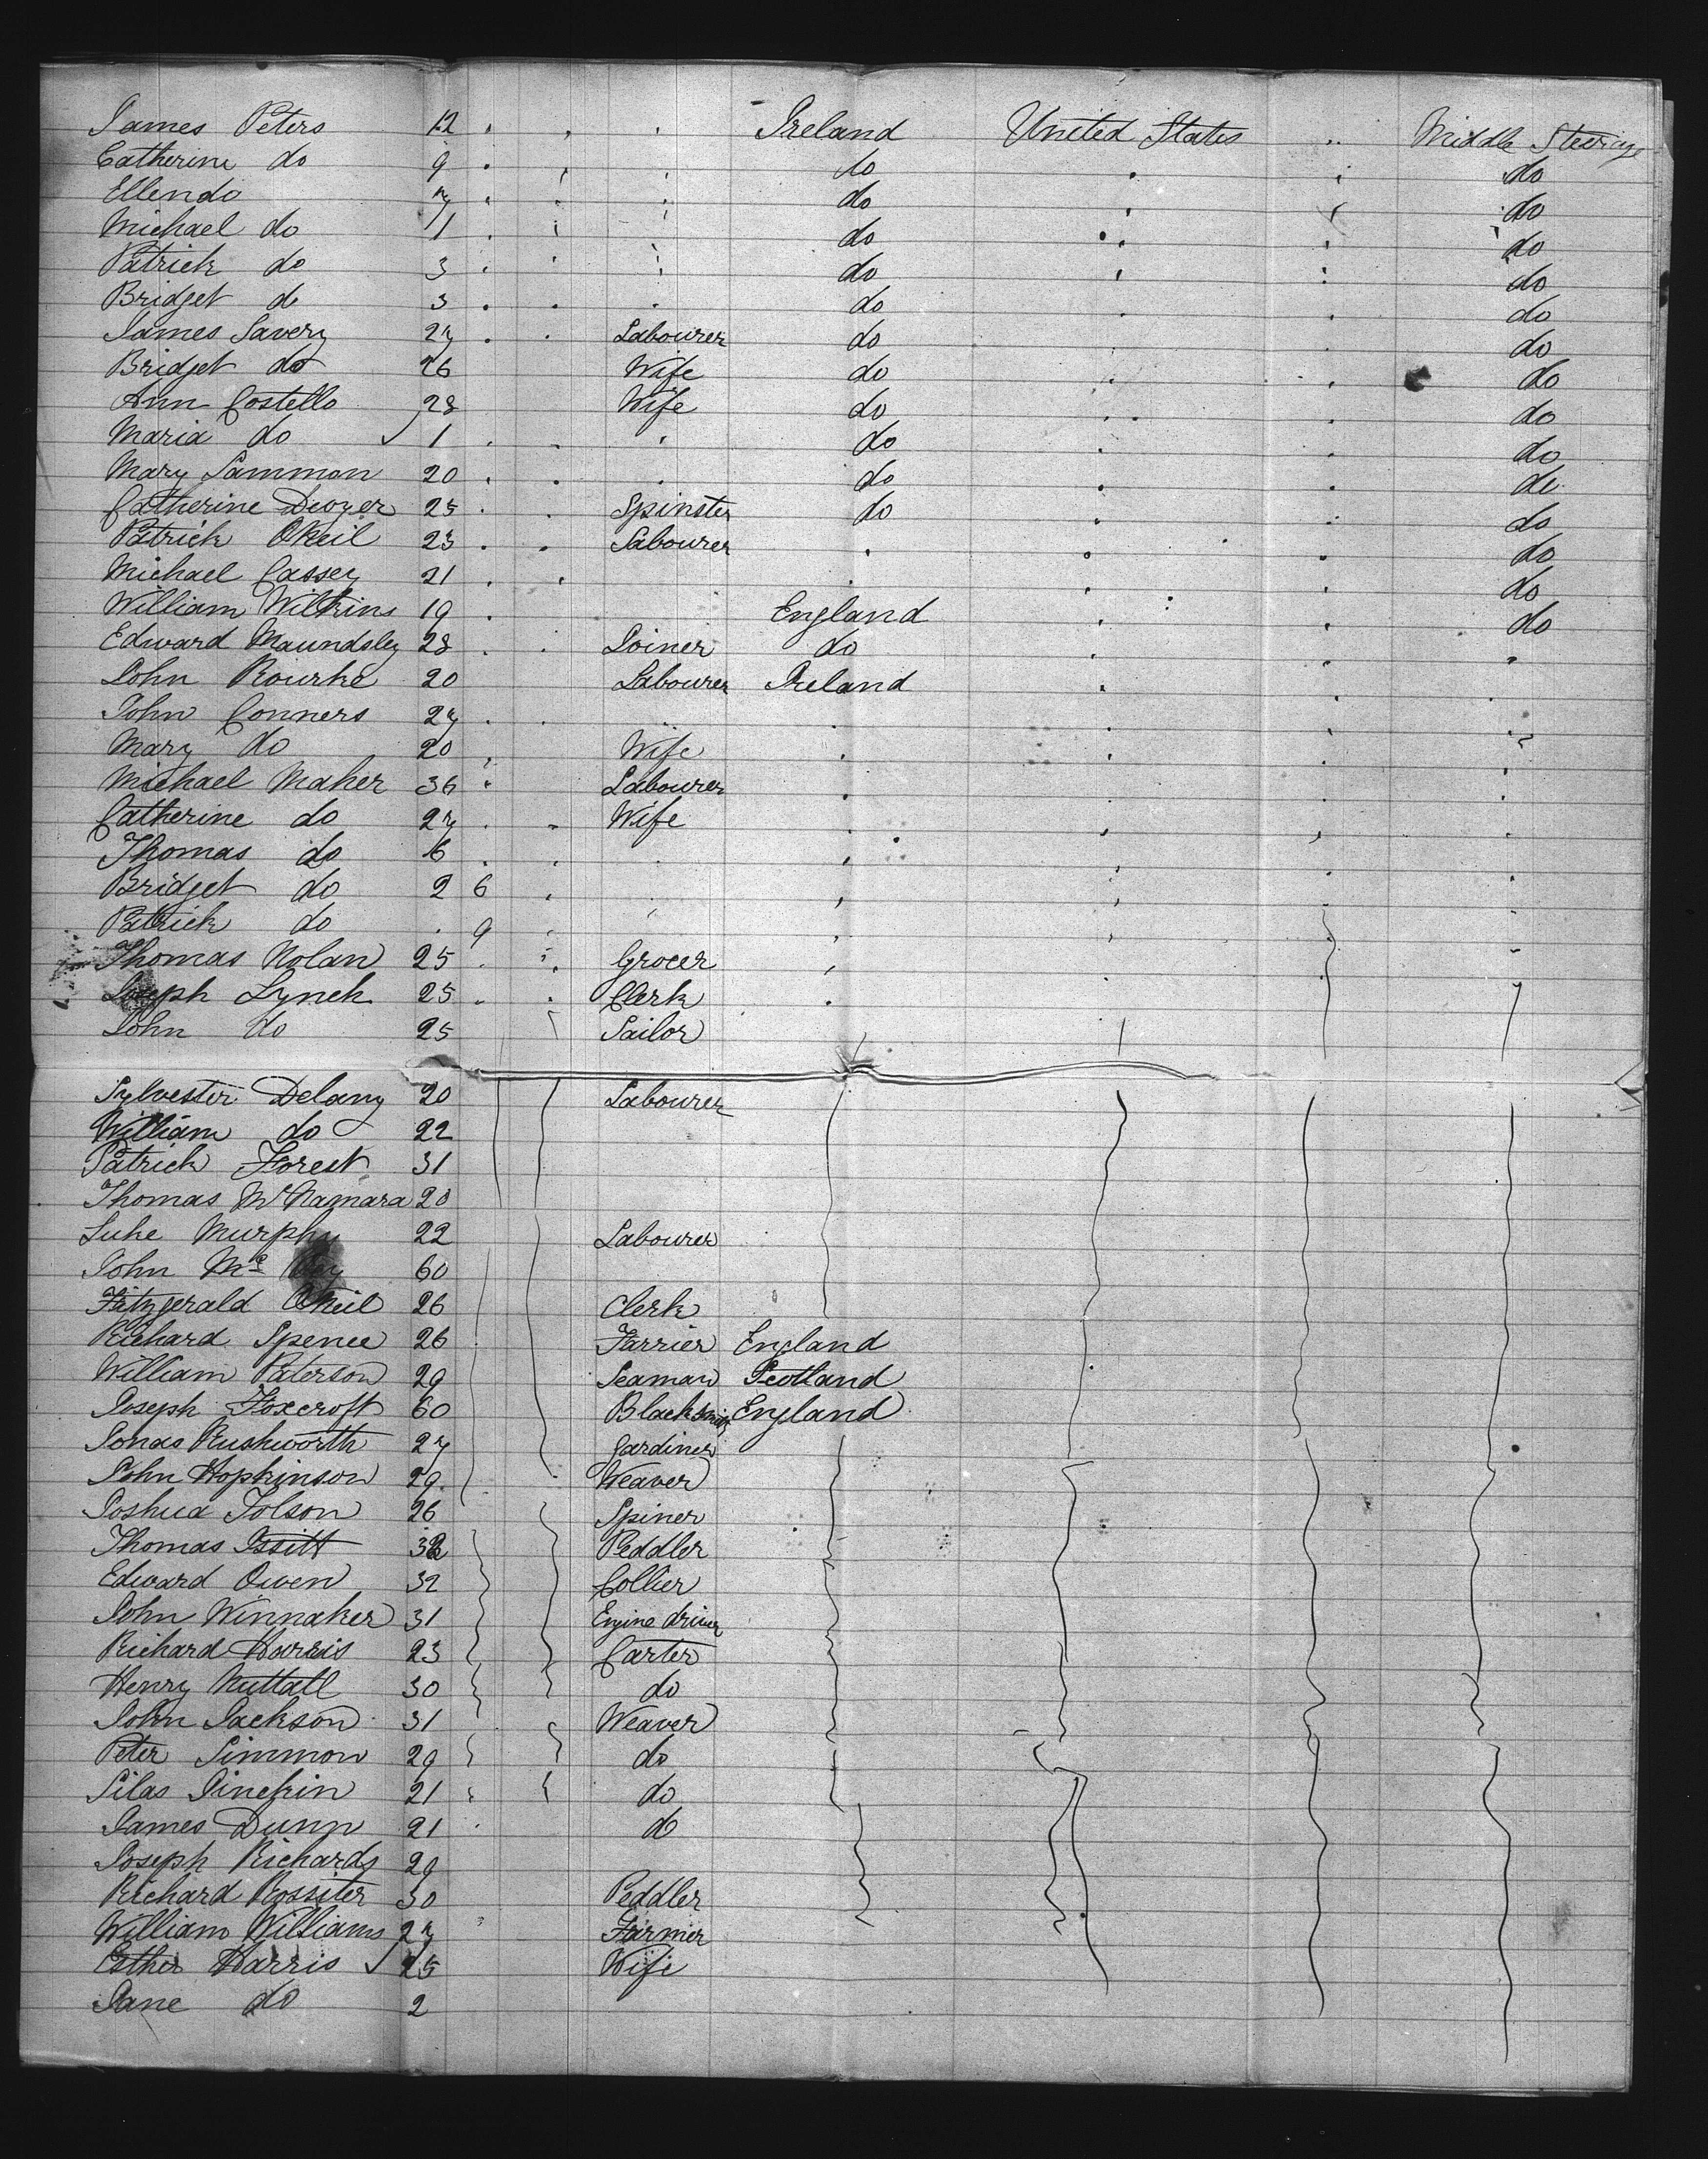 James Peters 12 Ireland United States Middle Steerage
Catherine do 9 do do
Ellen do 7 do do
Michael do 1 do do
Patrick do 3 do do
Bridget do 3 do do
James Savery 27 Labourer do do
Bridget do 26 Wife do do
Ann Costello 28 Wife do do
Maria do 1 do do
Mary Sammon 20 do do
Catherine Dwyer 25 Spinster do do
Patrick OKeil 23 Labourer do
Michael Cassey 21 do
William Wilkins 19 England do
Edward Maundsley 28 Joiner do
John Rourke 20 Labourer Ireland
John Conners 27
Mary do 20 Wife
Michael Maher 36 Labourer
Catherine do 27 Wife
Thomas do 6
Bridget do 2 6
Patrick do 9
Thomas Nolan 25 Grocer
Joseph Lynch 25 Clerk
John do 25 Sailor
Sylvester Delany 20 Labourer
William do 22
Patrick Forest 31
Thomas McNamara 20
Luke Murphy 22 Labourer
John Mc 60
Fitzgerald OKeil 26 Clerk
Richard Spence 26 Farrier England
William Paterson 29 Seaman Scotland
Joseph Foxcroft 60 Blacksmith England
Jonas Rushworth 27 Gardiner
John Hopkinson 29 Weaver
Joshua Tolson 26 Spiner
Thomas Issitt Peddler
Edward Owen 32 Collier
John Winnaker 31 Engine driver
Richard Harris 23 Carter
Henry Nuttall 30 do
John Jackson 31 Weaver
Peter Simmon 29 do
Silas 21 do
James Dunn 21 do
Joseph Richards 29
Richard Rossiter 30 Peddler
William Williams 27 Farmer
Esther Harris 25 Wife
Jane do 2